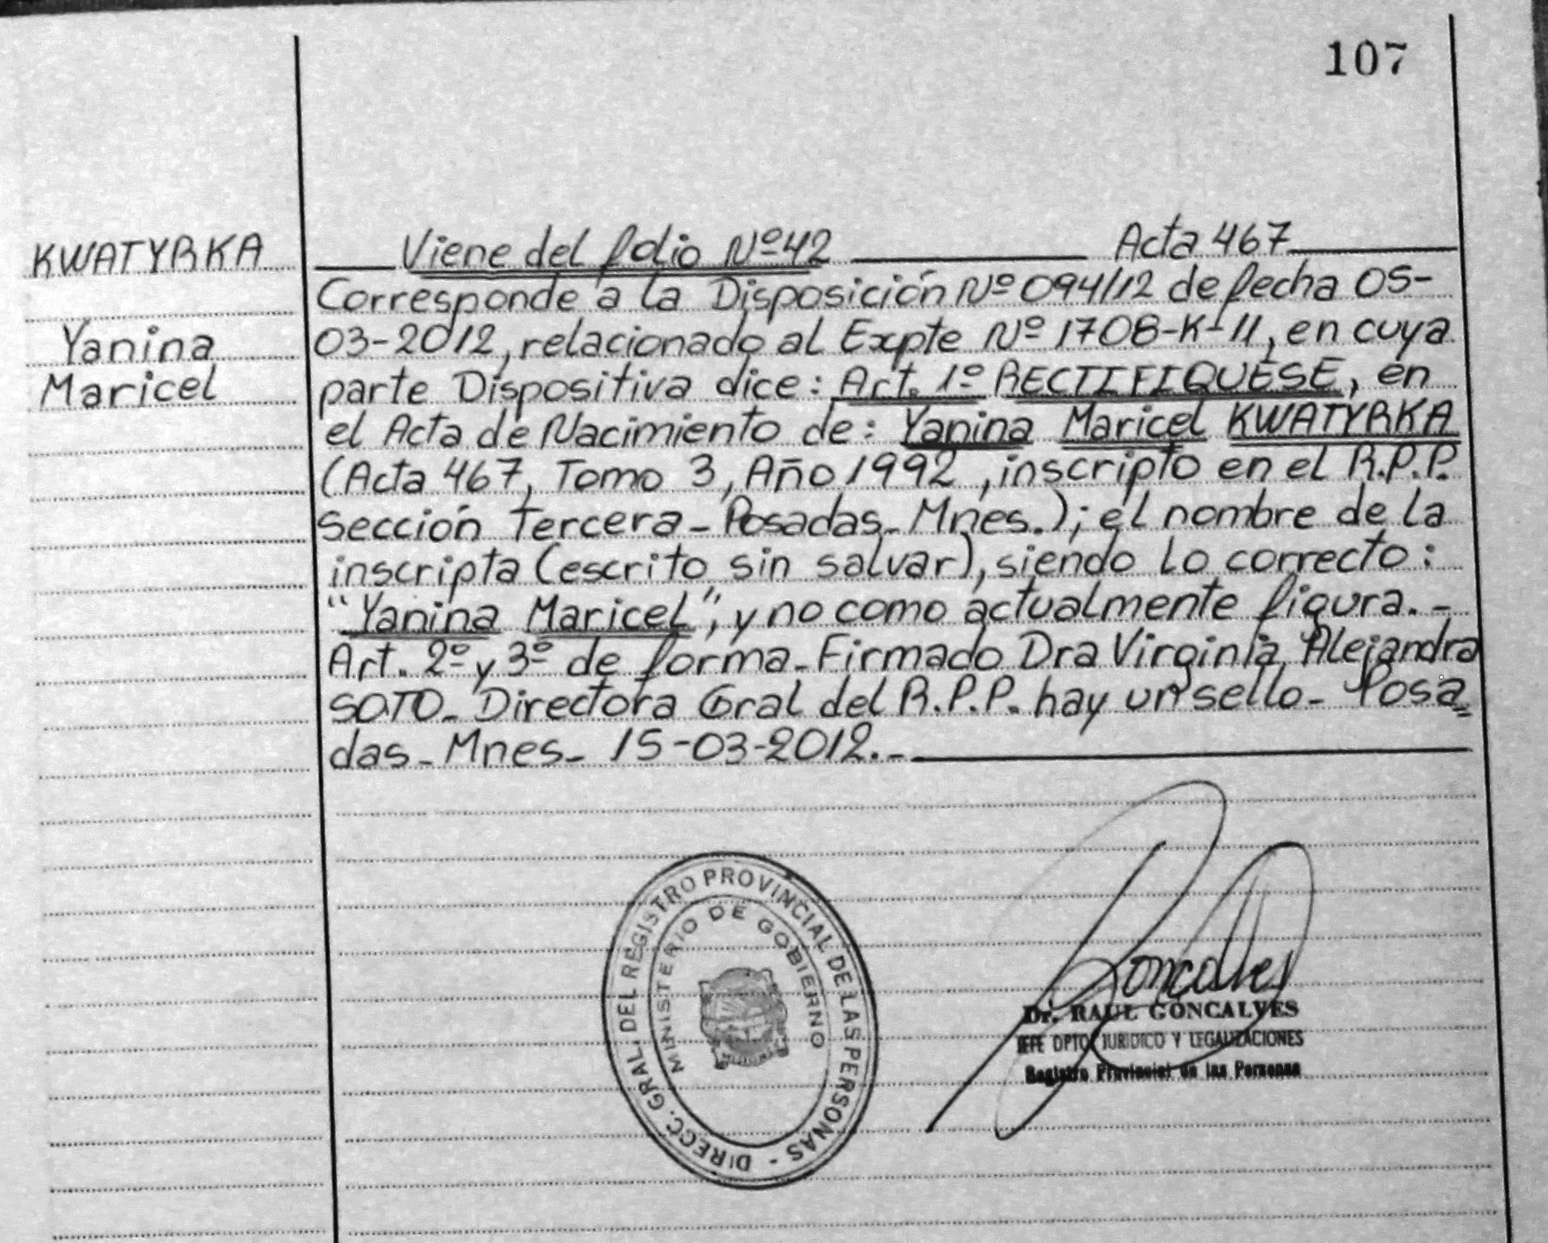 107
KWATYRKA
Yanina
Maricel
Viene del folio Nº 42 Acta 467
Corresponde a la Disposición Nº 094/12 de fecha 05-
03-2012, relacionado al Expte Nº 1708-K-11, en cuya
parte Dispositiva dice: Art. 1º RECTIFIQUESE, en
el Acta de Nacimiento de: Yanina Maricel KWATYRKA
(Acta 467, Tomo 3, Año 1992, inscripto en el R.P.P.
Sección Tercera - Posadas - Mnes.); el nombre de la
inscripta (escrito sin salvar), siendo lo correcto:
"Yanina Maricel", y no como actualmente figura.-
Art. 2º y 3º de forma - Firmado Dra Virginia Alejandra
SOTO - Directora Gral del R.P.P. hay un sello - Posa=
das - Mnes - 15-03-2012.-
DIRECC. GRAL. DEL REGISTRO PROVINCIAL DE LAS PERSONAS -
MINISTERIO DE GOBIERNO
Goncalves
Dr. RAUL GONCALVES
JEFE DPTO. JURIDICO Y LEGALIZACIONES
Registro Provincial de las Personas